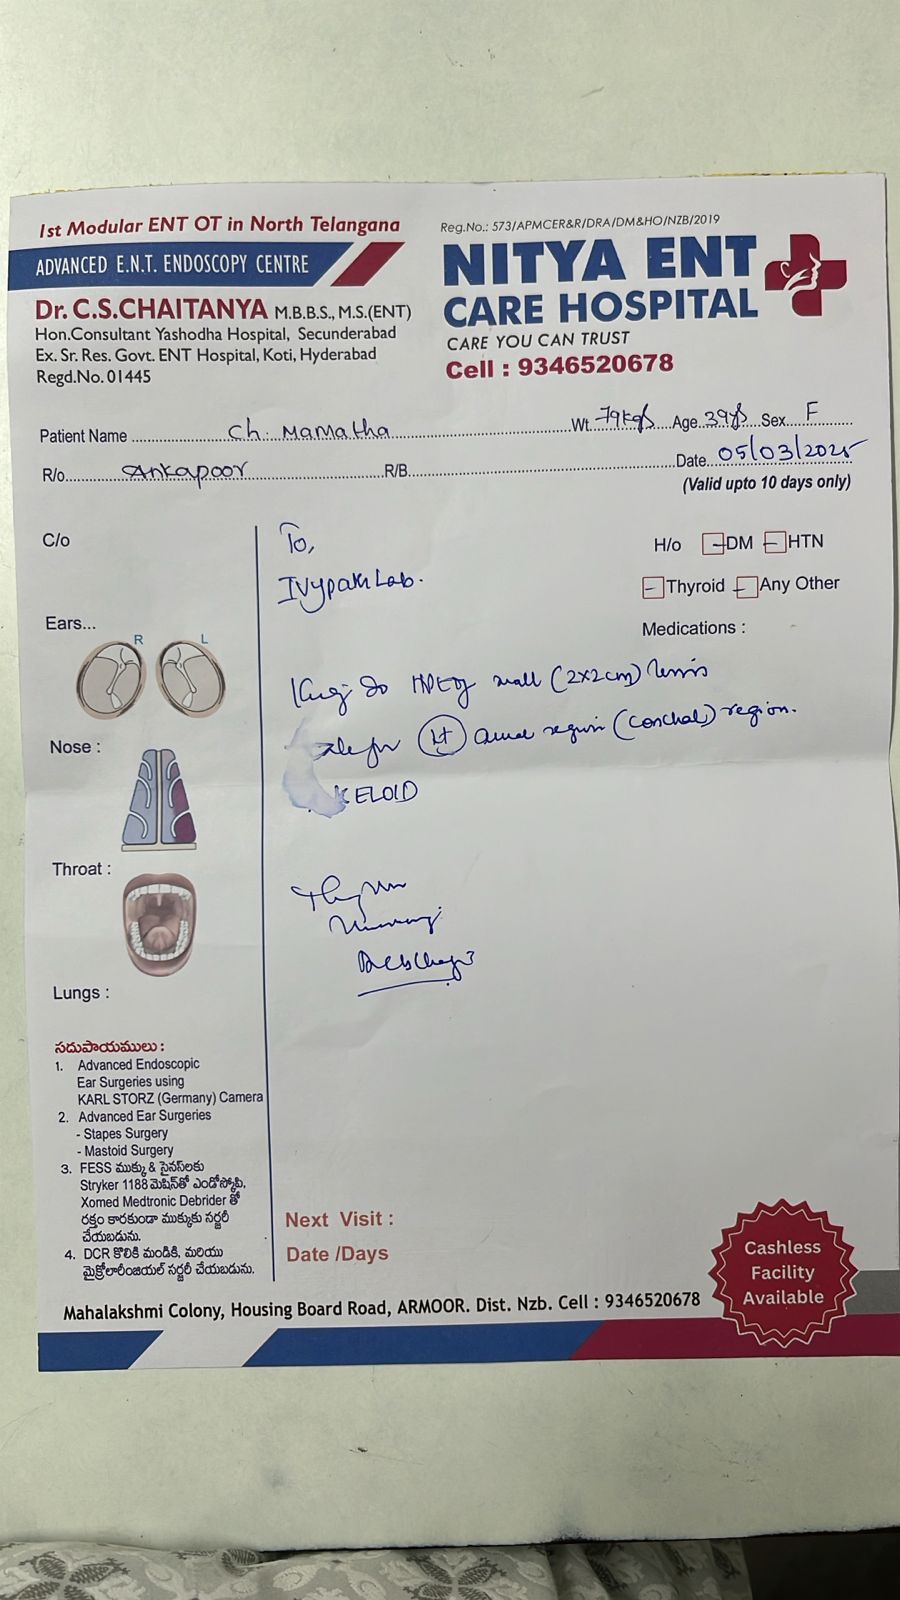 1st Modular ENT OT in North Telangana
ADVANCED E.N.T. ENDOSCOPY CENTRE
Dr. C.S.CHAITANYA M.B.B.S., M.S.(ENT)
Hon.Consultant Yashodha Hospital, Secunderabad
Ex. Sr. Res. Govt. ENT Hospital, Koti, Hyderabad
Regd.No. 01445
Reg.No.: 573/APMCER&R/DRA/DM&HO/NZB/2019
NITYA ENT
CARE HOSPITAL
CARE YOU CAN TRUST
Cell : 9346520678
Patient Name Ch. Mamatha Wt. 79kgs Age. 39ys Sex. F
R/o. Ankapoor R/B. Date. 05/03/2025
(Valid upto 10 days only)
C/o
To,
Ivypath Lab.
H/o DM HTN
Thyroid Any Other
Medications :
Ears...
R L
(2x2cm)
(conchal) region.
KELOID
Nose :
Throat :
Lungs :
సదుపాయములు :
1. Advanced Endoscopic
Ear Surgeries using
KARL STORZ (Germany) Camera
2. Advanced Ear Surgeries
- Stapes Surgery
- Mastoid Surgery
3. FESS ముక్కు & సైనస్‌లకు
Stryker 1188 మెషిన్‌తో ఎండోస్కోపి,
Xomed Medtronic Debrider తో
రక్తం కారకుండా ముక్కుకు సర్జరీ
చేయబడును.
4. DCR కొలికి మండికి, మరియు
మైక్రోలారింజియల్ సర్జరీ చేయబడును.
Next Visit :
Date /Days
Cashless
Facility
Available
Mahalakshmi Colony, Housing Board Road, ARMOOR. Dist. Nzb. Cell : 9346520678